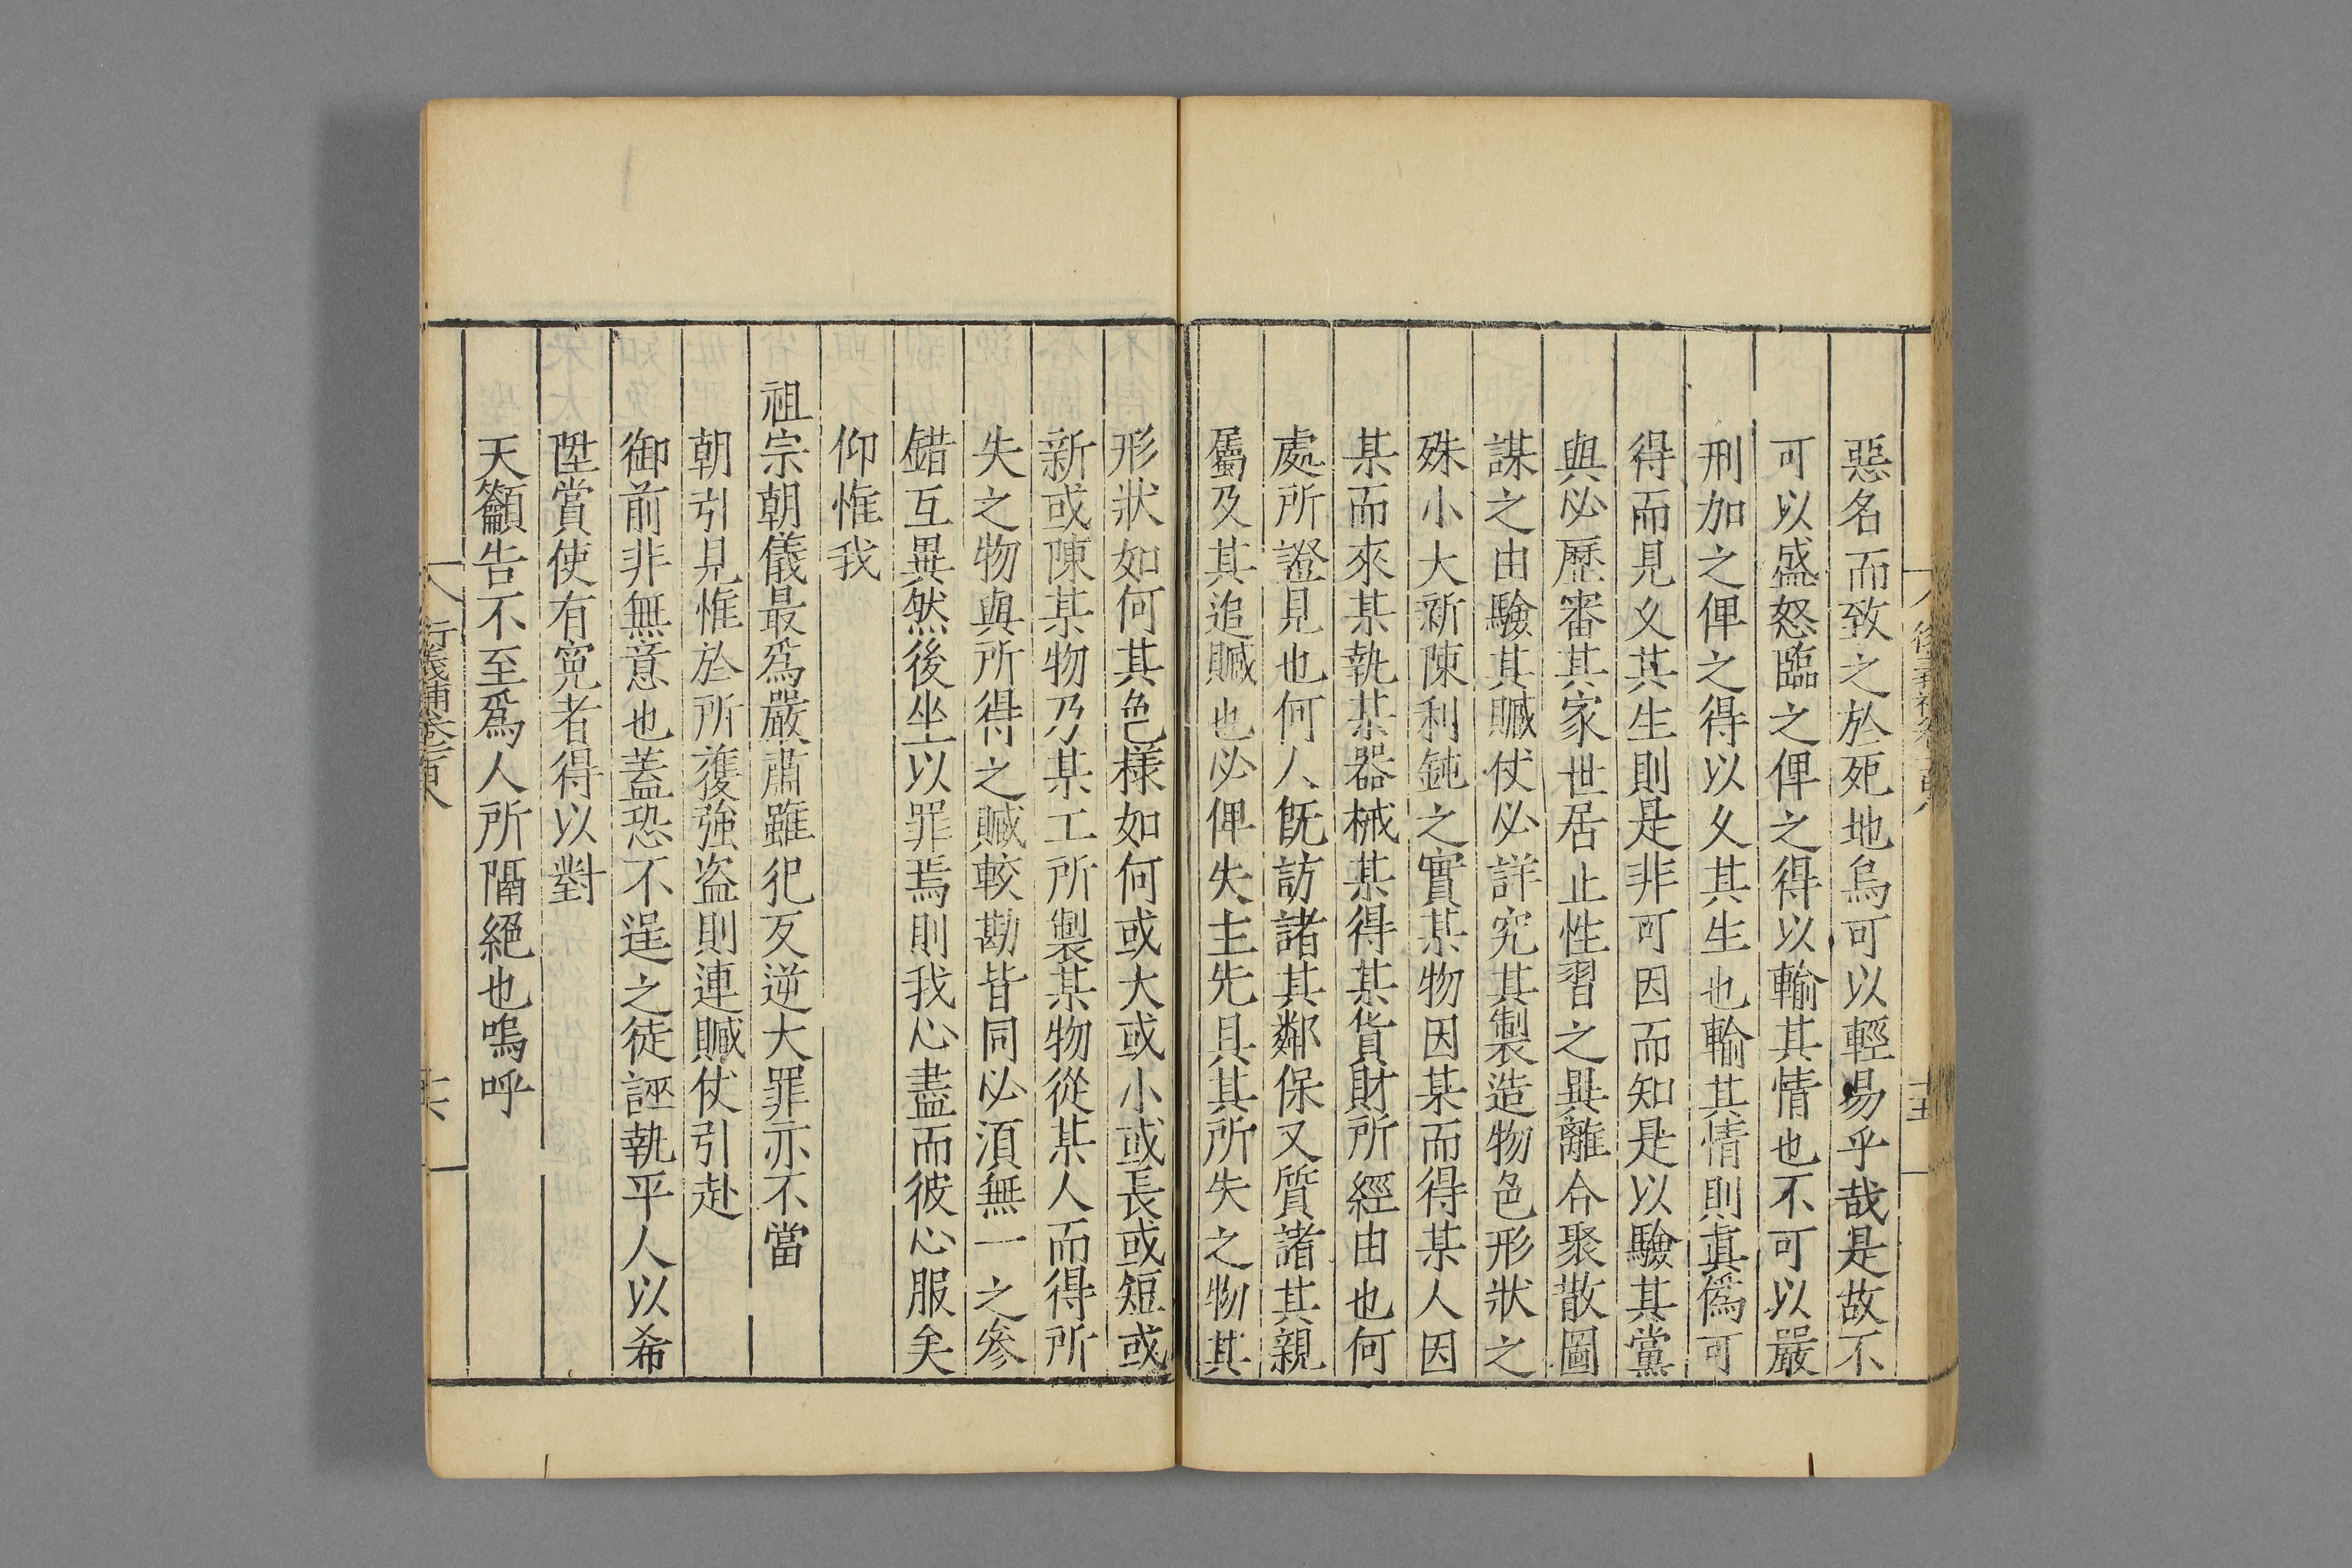 惡名而致之於死地烏可以輕易乎哉是故不
可以盛怒臨之俾之得以輸其情也不可以嚴
刑加之俾之得以夂其生也輸其情則真僞可
得而見夂其生則是非可因而知是以驗其黨
與必歷審其家世居止性習之異離合聚散圖
謀之由驗其贓仗必詳究其製造物色形狀之
殊小大新陳利鈍之實某物因某而得某人因
某而來某執某器械某得某貨財所經由也何
處所證見也何人旣訪諸其鄰保又質諸其親
屬及其追贓也必俾失主先具其所失之物其
形狀如何其色樣如何或大或小或長或短或
新或陳某物乃某工所製某物從某人而得所
失之物與所得之贓較勘皆同必須無一之參
錯互異然後坐以罪焉則我心盡而彼心服矣
仰惟我
祖宗朝儀最爲嚴肅雖犯反逆大罪亦不當
朝引見惟於所獲強盗則連贓仗引赴
御前非無意也蓋恐不逞之徒誣執平人以希
陞賞使有寃者得以對
天籲告不至爲人所隔絕也嗚呼
衍義補卷一百八
十六